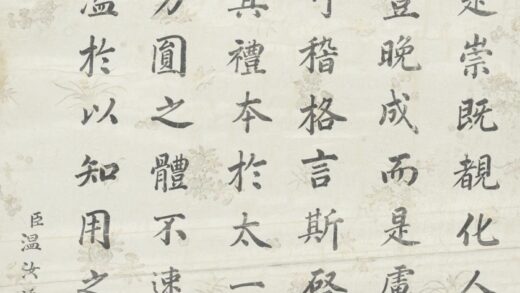 崇既覩化人
晚成而是慮
可稽格言斯啓
其禮本於太一
方圓之體不速
於以知用之
臣溫汝